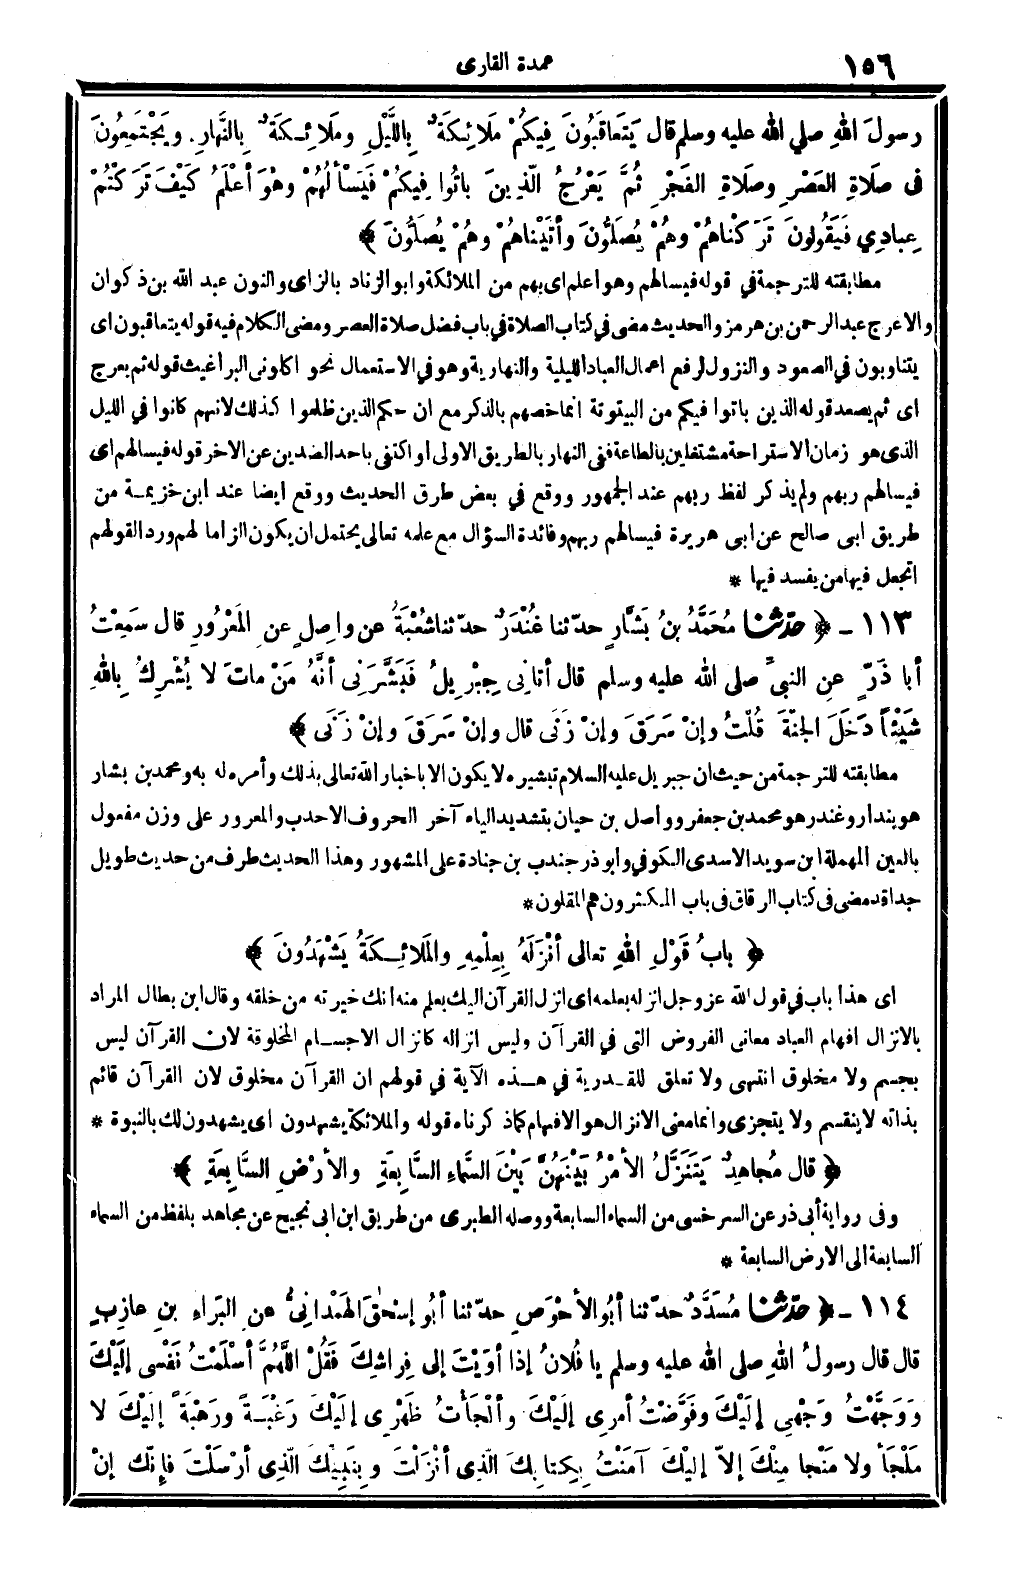 ١٥٦
عمدة القارى
رسولَ اللهِ صلى الله عليه وسلم قال يَتَعاقَبُونَ فِيكُمْ مَلَائِكَةٌ بِاللَّيْلِ ومَلَائِكَةٌ بِالنَّهارِ. ويَجْتَمِعُونَ
فى صَلَاةِ العَصْرِ وصَلَاةِ الفَجْرِ ثُمَّ يَعْرُجُ الَّذِينَ باتُوا فِيكُمْ فَيَسْألُهُمْ وهْوَ أعْلَمُ كَيْفَ تَرَكْتُمْ
عِبادِي فَيَقُولونَ تَرَكْناهُمْ وهُمْ يُصَلُّونَ وأتَيْناهُمْ وهُمْ يُصَلُّونَ ﴾
مطابقته للترجمة في قوله فيسالهم وهو اعلم اى بهم من الملائكة وابو الزناد بالزاى والنون عبد الله بن ذكوان
والاعرج عبد الرحمن بن هرمز والحديث مضى في كتاب الصلاة في باب فضل صلاة العصر ومضى الكلام فيه قوله يتعاقبون اى
يتناوبون في الصعود والنزول لرفع اعمال العباد الليلية والنهارية وهو في الاستعمال نحو اكلونى البراغيث قوله ثم يعرج
اى ثم يصعد قوله الذين باتوا فيكم من البيتوتة انما خصهم بالذكر مع ان حكم الذين ظلعوا كذلك لانهم كانوا في الليل
الذى هو زمان الاستراحة مشتغلين بالطاعة ففى النهار بالطريق الاولى او اكتفى باحد الضدين عن الاخر قوله فيسالهم اى
فيسالهم ربهم ولم يذكر لفظ ربهم عند الجمهور ووقع في بعض طرق الحديث ووقع ايضا عند ابن خزيمة من
طريق ابى صالح عن ابى هريرة فيسالهم ربهم وفائدة السؤال مع علمه تعالى يحتمل ان يكون الزاما لهم ورد القولهم
اتجعل فيها من يفسد فيها *
١١٣ - ﴿ حدّثنا مُحَمَّدُ بنُ بَشَّارٍ حدّثنا غُنْدَرٌ حدّثنا شُعْبَةُ عن واصِلٍ عنِ المَعْرُورِ قال سَمِعْتُ
أبا ذَرٍّ عنِ النبيِّ صلى الله عليه وسلم قال أتانِى جِبْرِيلُ فَبَشَّرَنِى أنَّهُ مَنْ ماتَ لا يُشْرِكُ بِاللهِ
شَيْئًا دَخَلَ الجَنَّةَ قُلْتُ وإنْ سَرَقَ وإنْ زَنَى قال وإنْ سَرَقَ وإنْ زَنَى ﴾
مطابقته للترجمة من حيث ان جبريل عليه السلام تبشيره لا يكون الا باخبار الله تعالى بذلك وأمره له به ومحمد بن بشار
هو بندار وغندر هو محمد بن جعفر وواصل بن حيان بتشديد الياء آخر الحروف الاحدب والمعرور على وزن مفعول
بالعين المهملة ابن سويد الاسدى الكوفي وابو ذر جندب بن جنادة على المشهور وهذا الحديث طرف من حديث طويل
جدا قد مضى فى كتاب الرقاق فى باب المكثرون هم المقلون *
﴿ بابُ قَوْلِ اللهِ تعالى أنْزَلَهُ بِعِلْمِهِ والمَلائِكَةُ يَشْهَدُونَ ﴾
اى هذا باب في قول الله عز وجل انزله بعلمه اى انزل القرآن اليك بعلم منه انك خيرته من خلقه وقال ابن بطال المراد
بالانزال افهام العباد معانى الفروض التى في القرآن وليس انزاله كانزال الاجسام المخلوقة لان القرآن ليس
بجسم ولا مخلوق انتهى ولا تعلق للقدرية في هذه الآية في قولهم ان القرآن مخلوق لان القرآن قائم
بذاته لا ينقسم ولا يتجزى وانما معنى الانزال هو الافهام كما ذكرناه قوله والملائكة يشهدون اى يشهدون لك بالنبوة *
﴿ قال مُجاهِدٌ يَتَنَزَّلُ الأمْرُ بَيْنَهُنَّ بَيْنَ السَّماءِ السَّابِعَةِ والأرْضِ السَّابِعَةِ ﴾
وفى رواية أبى ذر عن السرخسى من السماء السابعة ووصله الطبرى من طريق ابن ابى نجيح عن مجاهد بلفظ من السماء
السابعة الى الارض السابعة *
١١٤ - ﴿ حدّثنا مُسَدَّدٌ حدّثنا أبُو الأحْوَصِ حدّثنا أبُو إسْحٰقَ الهَمْدانِىُّ عنِ البَرَاءِ بنِ عازِبٍ
قال قال رسولُ اللهِ صلى الله عليه وسلم يا فُلَانُ إذا أوَيْتَ إلى فِراشِكَ فَقُلْ اللَّهُمَّ أسْلَمْتُ نَفْسِى إلَيْكَ
وَوَجَّهْتُ وَجْهِى إلَيْكَ وفَوَّضْتُ أمرِى إلَيْكَ وألْجَأْتُ ظَهْرِى إلَيْكَ رَغْبَةً ورَهْبَةً إلَيْكَ لا
مَلْجَأَ ولا مَنْجا مِنْكَ إلاّ إلَيْكَ آمَنْتُ بِكِتابِكَ الّذِى أنْزَلْتَ وبِنَبِيِّكَ الّذِى أرْسَلْتَ فإنّكَ إنْ